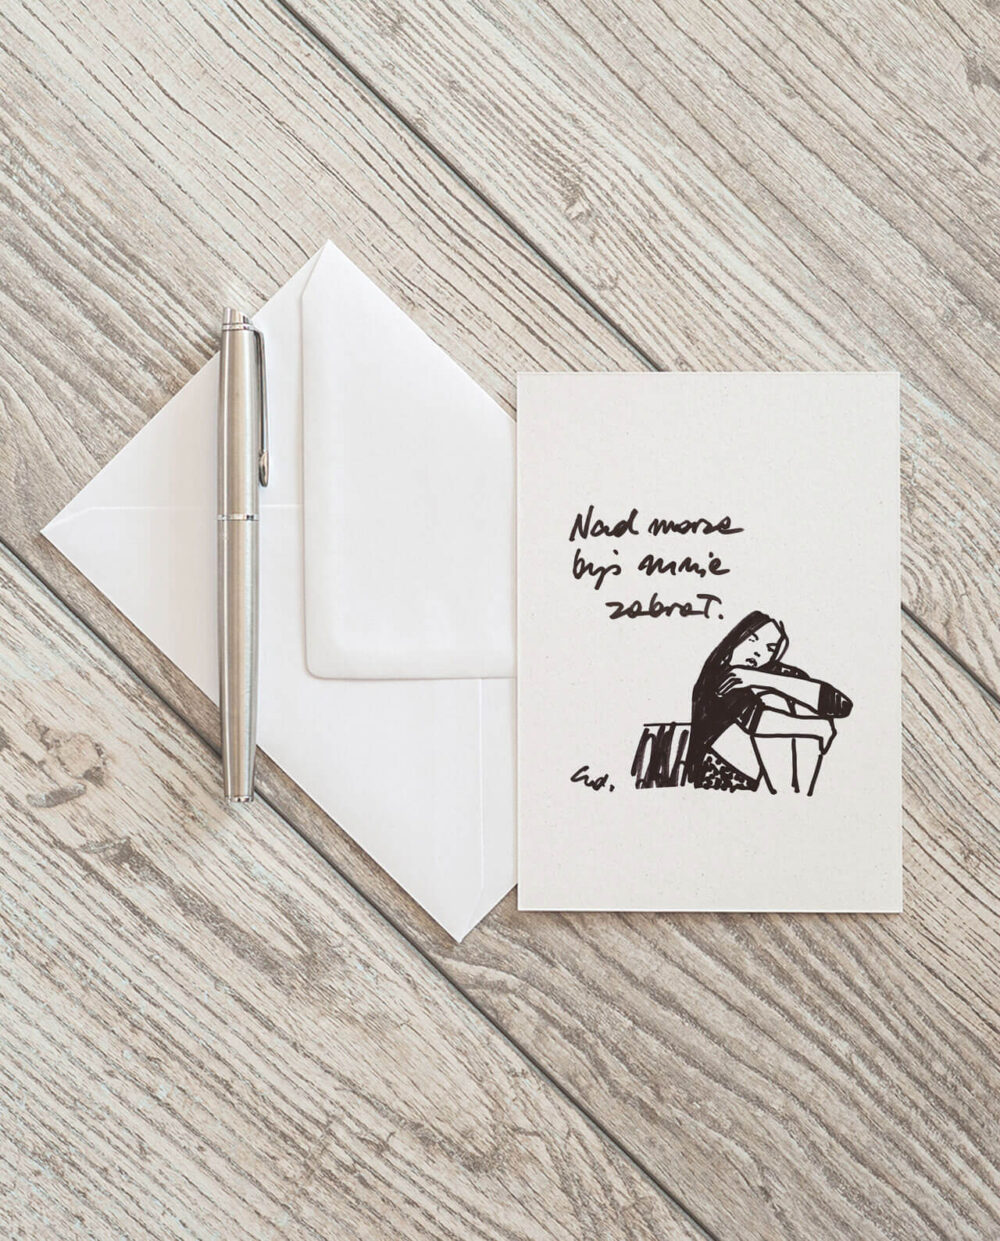 Nad morze
byś mnie
zabrał.